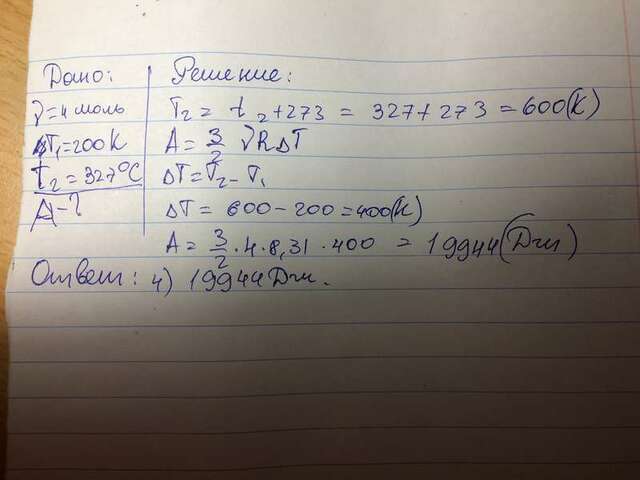 Дано:
ν = 4 моль
ΔT₁ = 200K
t₂ = 327°C
A - ?
Решение:
T₂ = t₂ + 273 = 327 + 273 = 600(K)
A = 3/2 νRΔT
ΔT = T₂ - T₁
ΔT = 600 - 200 = 400(K)
A = 3/2 · 4 · 8,31 · 400 = 19944(Дж)
Ответ: 4) 19944Дж.